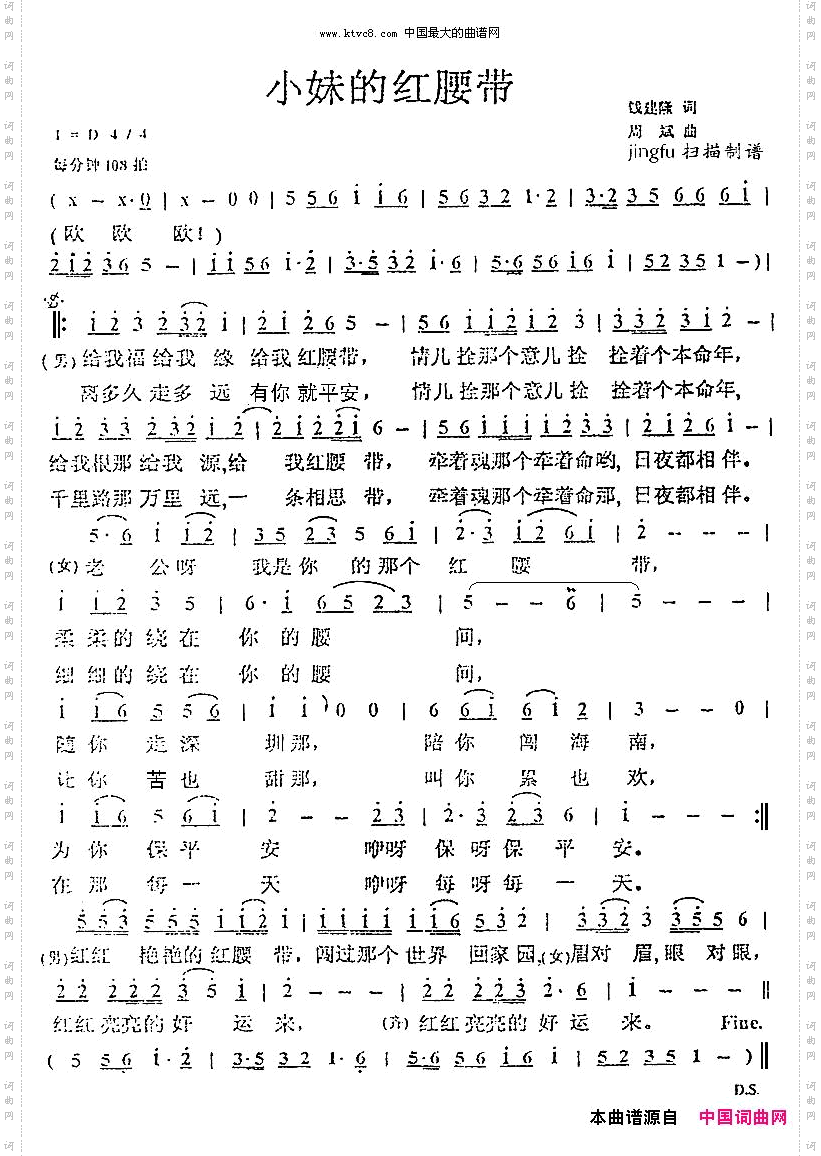 www.ktvc8.com 中国最大的曲谱网
小妹的红腰带
钱建隆 词
1 = D 4/4
周 斌 曲
每分钟108拍
jingfu 扫描制谱
( x – x·0 | x – 0 0 | 5 5 6 i i 6 | 5 5 6 3 2 1·2 | 3·2 3 5 6 6 6 i |
(欧 欧 欧!)
2 i 2 3 6 5 – | i i 5 6 i·2 | 3·5 3 2 i·6 | 5·6 5 6 i 6 i | 5 2 3 5 1 – )|
‖: i 2 3 2 3 2 i | 2 i 2 6 5 – | 5 6 i i i 2 i 2 3 | 3 2 3 i 2 – |
(男)给我福给我 缘 给我红腰带, 情儿拴那个意儿拴 拴着个本命年,
离多久走多 远 有你就平安, 情儿拴那个意儿拴 拴着个本命年,
i 2 3 3 2 3 2 i 2 | 2 i 2 2 i 6 – | 5 6 i i i i 2 3 3 | 2 i 2 6 i – |
给我根那给我 源,给 我红腰 带, 牵着魂那个牵着命哟, 日夜都相伴。
千里路那万里 远,一 条相思 带, 牵着魂那个牵着命那, 日夜都相伴。
5·6 i i 2 | 3 5 2 3 5 6 i | 2·3 i 2 6 i | 2 – – – |
(女)老 公呀 我是你 的那个 红 腰 带,
i i 2 3 5 | 6·i 6 5 2 3 | 5 – – 6 | 5 – – – |
柔柔的绕在 你的腰 间,
细细的绕在 你的腰 间,
i i 6 5 5 6 | i i 0 0 | 6 6 i 6 i 2 | 3 – – 0 |
随你 走深 圳那, 陪你 闯海南,
让你 苦也 甜那, 叫你 累也欢,
i i 6 5 6 i | 2 – – 2 3 | 2·3 2 3 6 | i – – – :‖
为你 保平 安 咿呀 保呀保 平 安。
在那 每一 天 咿呀 每呀每 一 天。
5 5 3 5 5 5 i i 2 i | i i i i i i i 6 5 3 2 | 3 3 2 3 3 5 5 6 |
(男)红红 艳艳的红腰 带,闯过那个世界 回家园,(女)眉对 眉,眼 对眼,
2 2 2 2 2 3 5 i | 2 – – – | 2 2 2 2 2 3 2 2·6 | i – – – ‖
红红亮亮的好 运来, (齐)红红亮亮的好运 来。 Fine.
( 5 5 6 i·2 | 3·5 3 2 1·6 | 5·6 5 6 i 6 i | 5 2 3 5 1 – )‖
D.S.
本曲谱源自 中国词曲网